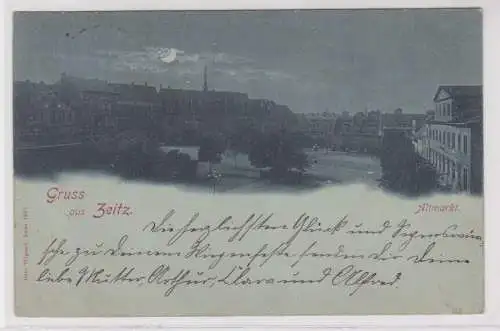 Gruss
aus Zeitz.
Altmarkt.
Die herzlichsten Glück und Segenswün-
sche zu Deinem Wiegenfeste senden dir Deine
liebe Mutter, Arthur, Clara und Alfred.